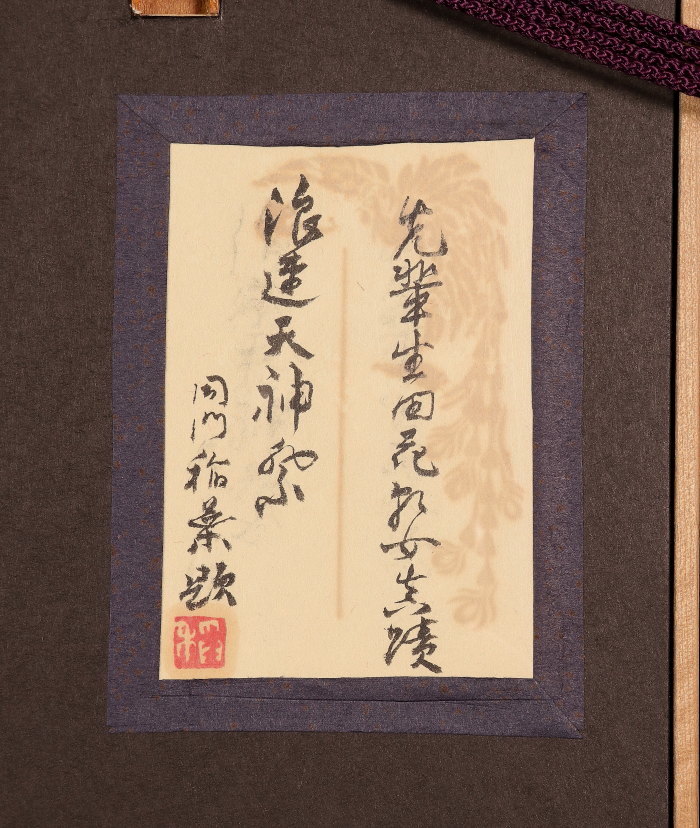 先輩生田花朝女真蹟
浪速天神祭
同門稲葉題